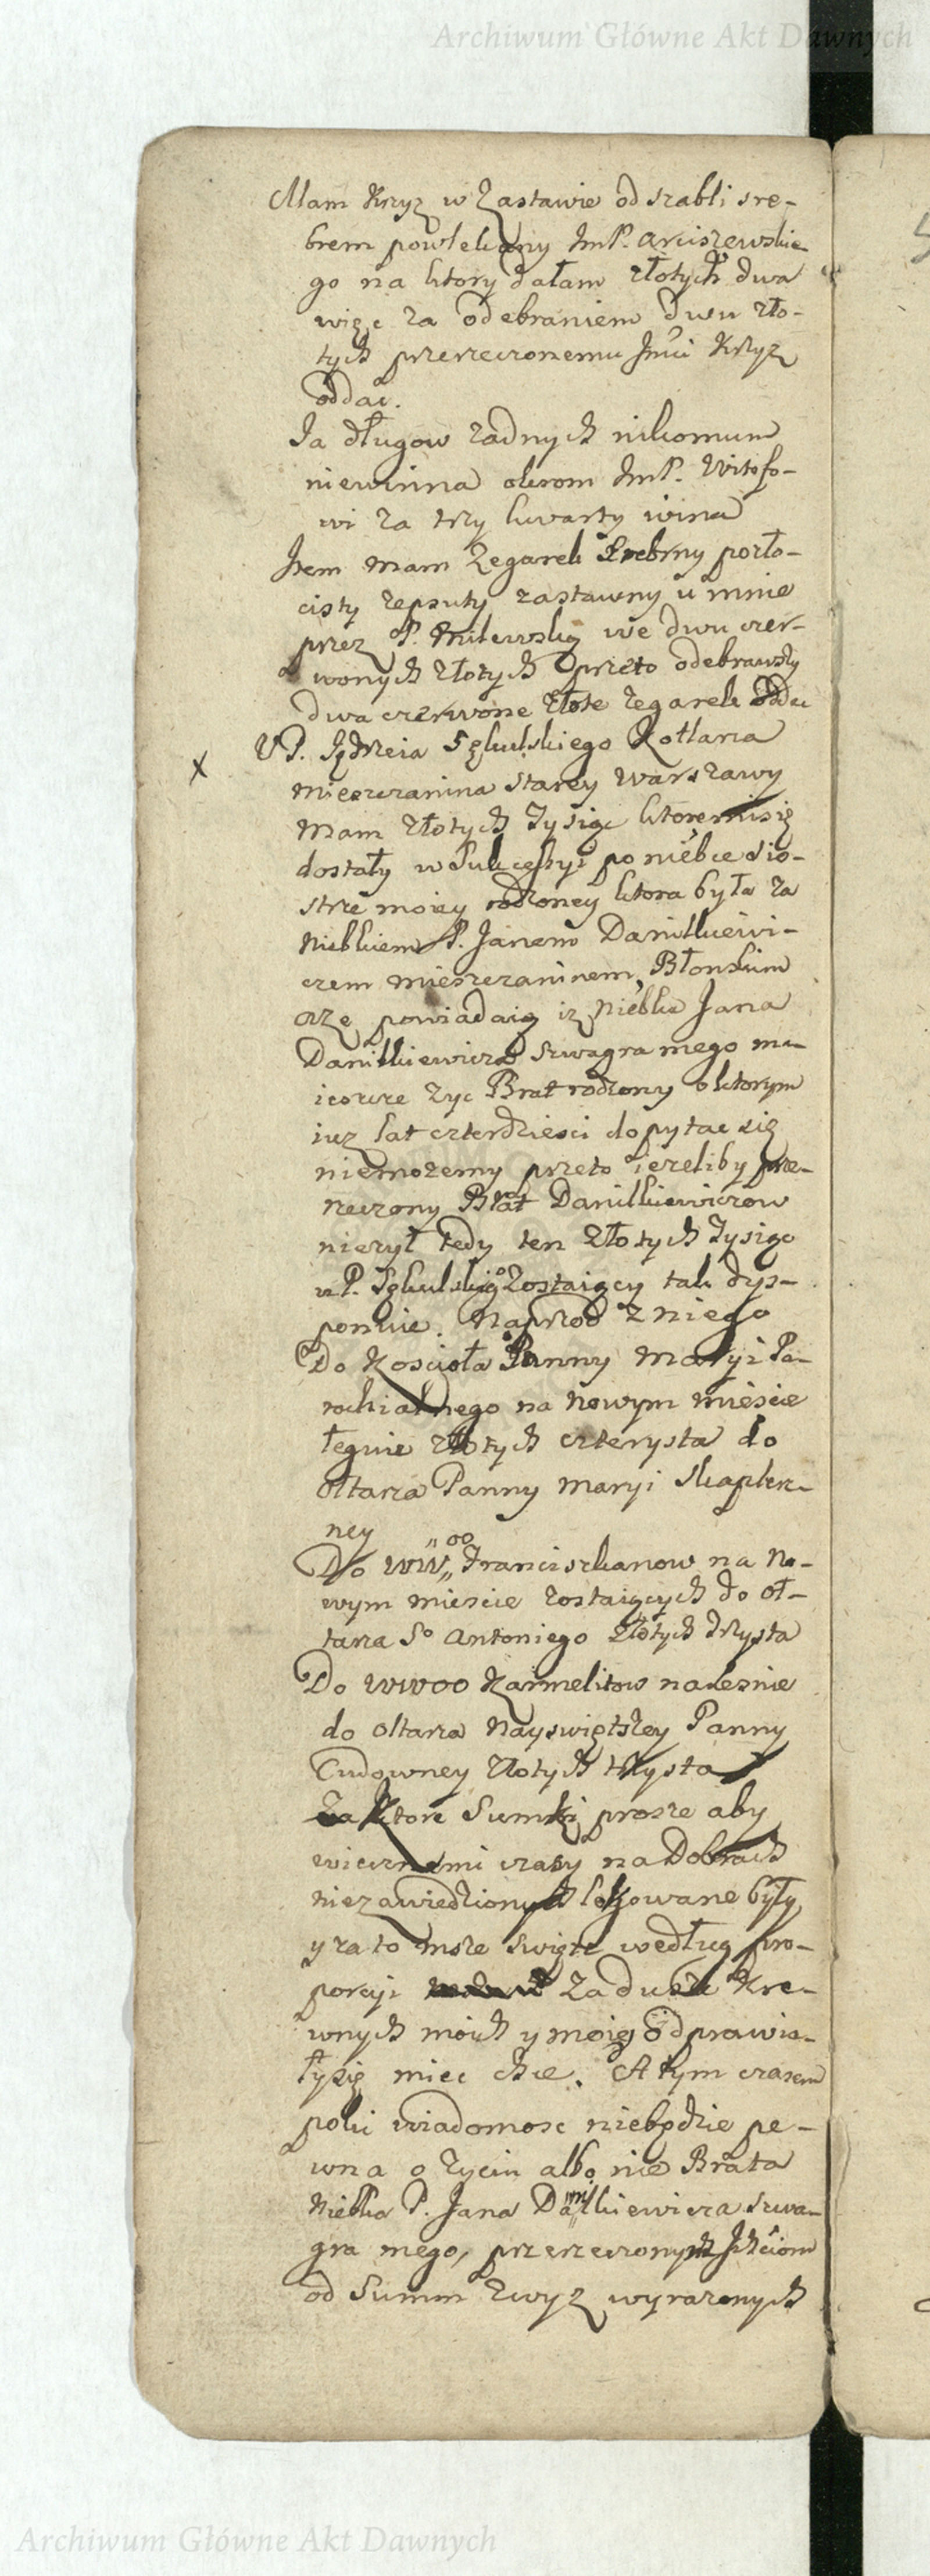 Archiwum Główne Akt Dawnych
Mam Krzyz w Zastawie od szabli sre-
brem powlekany JmP. Arciszewskie-
go na ktory dałam złotych dwa
więc za odebraniem dwu zło-
tych przerzeczonemu Jmci Krzyz
oddac.
Ja długow zadnych nikomum
niewinna okrom JmP. Witofo-
wi za trzy kwarty wina
Jtem mam Zegarek Srebrny pozło-
cisty zepsuty zastawny u mnie
przez P. Milewską we dwu czer-
wonych złotych przeto odebrawszy
dwa czerwone złote zegarek oddac
x U P. Jędrzeia Sękulskiego Kotlarza
mieszczanina Starey Warszawy
mam złotych Tysiąc ktore mi się
dostały w Sukcessyi po niebce sio-
strze moiey rodzoney ktora była za
Niebkiem P. Janem Danilkiewi-
czem mieszczaninem Błonskim
a ze powiadaią iz Niebka Jana
Danilkiewicza szwagra mego ma
ieszcze zyc Brat rodzony o ktorym
iuz lat czterdziesci dopytac się
niemozemy przeto iezeliby prze-
rzeczony Brat Danilkiewiczow
niezył tedy ten złotych Tysiąc
u P. Sękulskigo zostaiący tak dys-
ponuie. Naprzod z niego
Do Koscioła Panny Maryi Pa-
rochialnego na Nowym miescie
leguie złotych czterysta do
ołtarza Panny Maryi Skapler-
ney
Do WW„oo„ Franciszkanow na No-
wym miescie zostaiących do oł-
tarza So Antoniego złotych trzysta
Do WWOO Karmelitow na Lesznie
do oltarza Nayswiętszey Panny
Cudowney złotych trzysta
Za ktore Summki prosze aby
wiecznemi czasy na Dobrach
niezawiedzionych lokowane były
y za to msze swięte według pro-
porcyi za dusze Kre-
wnych moich y moię odprawia-
ły się miec chce. A tym czasem
poki wiadomosc niebędzie pe-
wna o zyciu albo nie Brata
Niebka P. Jana Danilkiewicza szwa-
gra mego, przerzeczonych
od Summ zwyz wyrazonych
Archiwum Główne Akt Dawnych